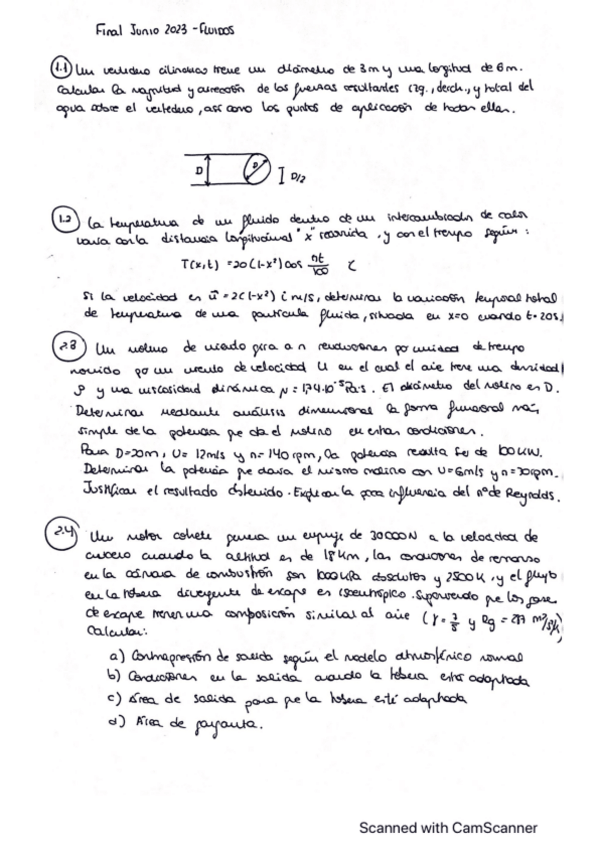 Final Junio 2023 - FLUIDOS
1.1 Un vertedero cilíndrico tiene un diámetro de 3m y una longitud de 6m.
Calcular la magnitud y dirección de las fuerzas resultantes izq., derch., y total del
agua sobre el vertedero, así como los puntos de aplicación de todas ellas.
D D D/2
1.2 La temperatura de un fluido dentro de un intercambiador de calor
varía con la distancia longitudinal "x" recorrida, y con el tiempo según:
T(x,t) = 20(1-x²)cos πt/100 ℃
Si la velocidad es u⃗ = 2(1-x²) i m/s, determinar la variación temporal total
de temperatura de una partícula fluida, situada en x=0 cuando t=20s.
2.3 Un molino de viento gira a n revoluciones por unidad de tiempo
movido por un viento de velocidad U en el cual el aire tiene una densidad
ρ y una viscosidad dinámica μ = 1,74·10⁻⁵ Pa·s. El diámetro del molino es D.
Determinar mediante análisis dimensional la forma funcional más
simple de la potencia que da el molino en estas condiciones.
Para D=20m, U= 12m/s y n=140 rpm, la potencia resulta ser de 100KW.
Determinar la potencia que daría el mismo molino con U=6m/s y n=70rpm.
Justificar el resultado obtenido. Explicar la poca influencia del nº de Reynolds.
2.4 Un motor cohete genera un empuje de 30000N a la velocidad de
crucero cuando la altitud es de 18Km, las condiciones de remanso
en la cámara de combustión son 1000KPa absolutos y 2500K, y el flujo
en la tobera divergente de escape es isentrópico. Suponiendo que los gases
de escape tienen una composición similar al aire (γ = 7/5 y Rg = 287 m²/s²K)
Calcular:
a) Contrapresión de salida según el modelo atmosférico normal
b) Condiciones en la salida cuando la tobera está adaptada
c) Área de salida para que la tobera esté adaptada
d) Área de garganta.
Scanned with CamScanner